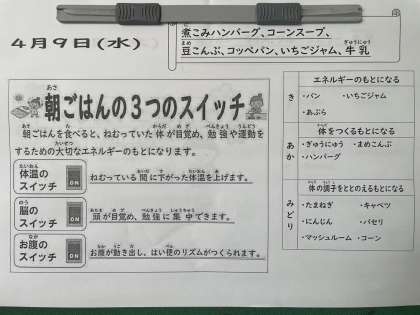 4月9日(水)
煮こみハンバーグ、コーンスープ、
豆こんぶ、コッペパン、いちごジャム、牛乳
朝ごはんの3つのスイッチ
朝ごはんを食べると、ねむっていた体が目覚め、勉強や運動を
するための大切なエネルギーのもとになります。
体温の
スイッチ
ON
ねむっている間に下がった体温を上げます。
脳の
スイッチ
ON
頭が目覚め、勉強に集中できます。
お腹の
スイッチ
ON
お腹が動き出し、はい便のリズムがつくられます。
き
エネルギーのもとになる
・パン ・いちごジャム
・あぶら
あか
体をつくるもとになる
・ぎゅうにゅう ・まめこんぶ
・ハンバーグ
みどり
体の調子をととのえるもとになる
・たまねぎ ・キャベツ
・にんじん ・パセリ
・マッシュルーム ・コーン